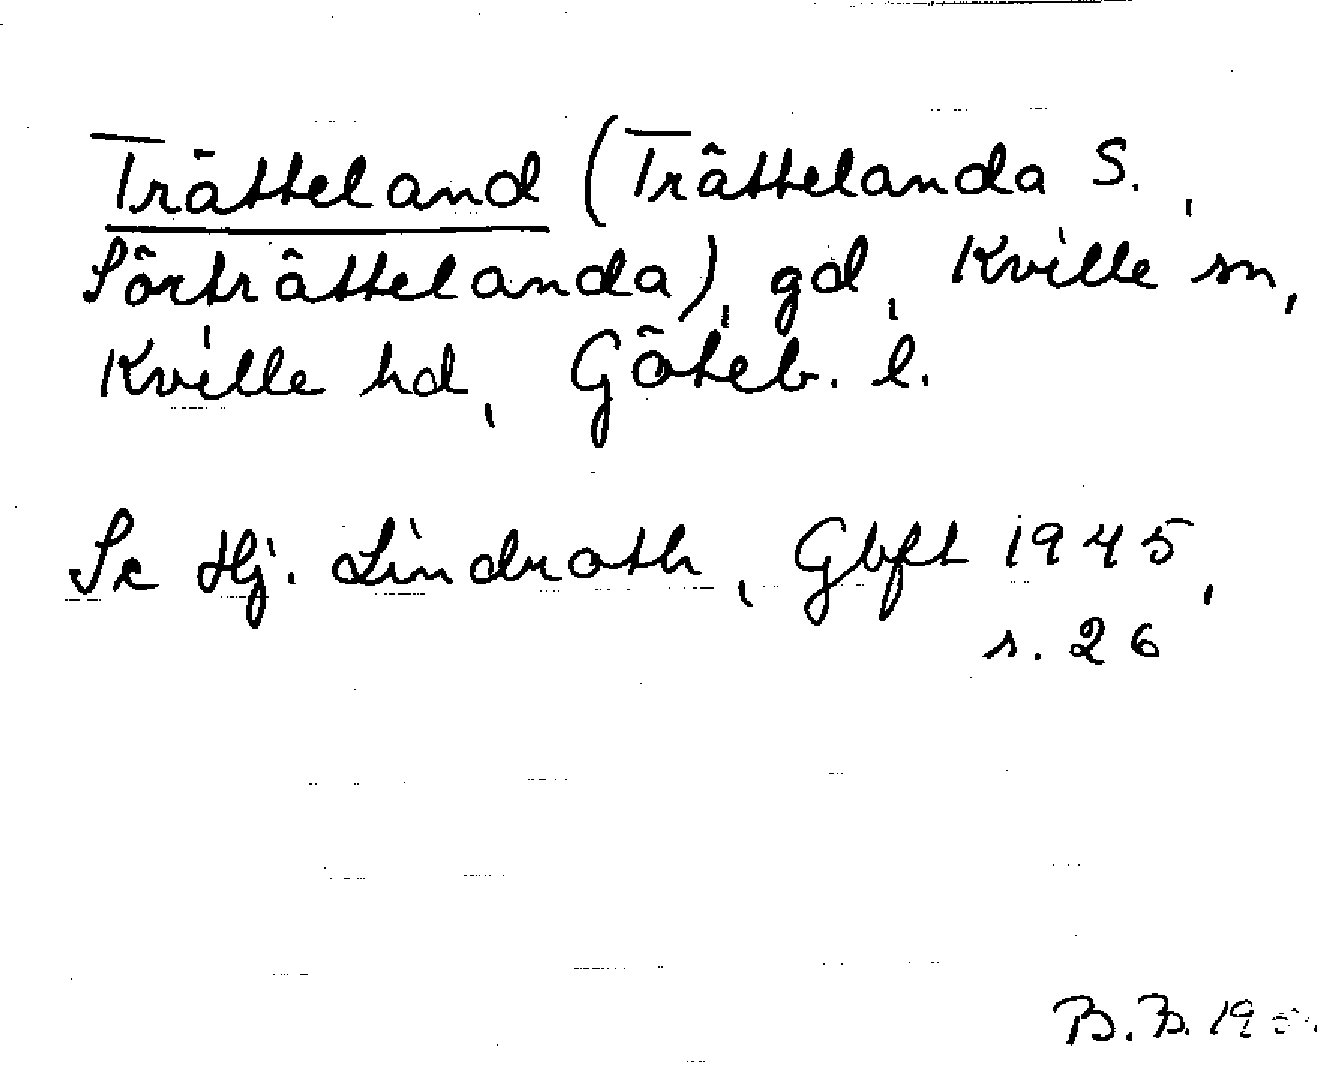 Trätteland (Trättelanda S.,
Sörträttelanda), gd, Kville sn,
Kville hd, Göteb. l.
Se Hj. Lindroth, Gbft 1945,
s. 26
B.B.